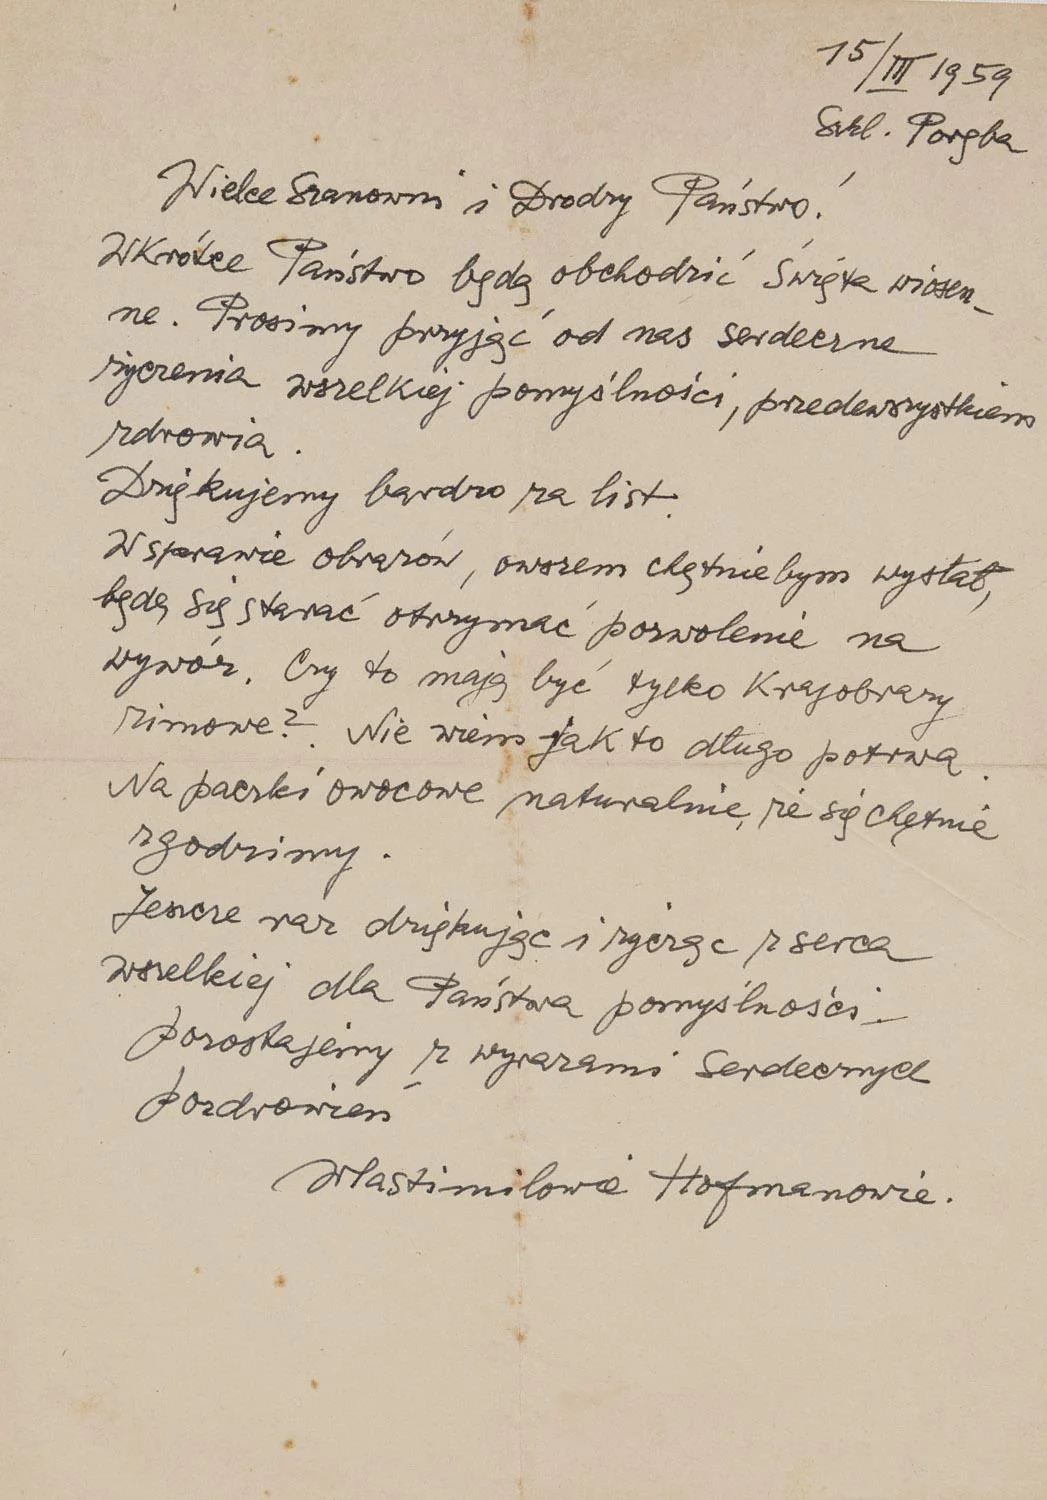 15/III 1959
Szkl. Poręba
Wielce Szanowni i Drodzy Państwo!
Wkrótce Państwo będą obchodzić Święta wiosen-
ne. Prosimy przyjąć od nas serdeczne
życzenia wszelkiej pomyślności, przedewszystkiem
zdrowia.
Dziękujemy bardzo za list.
W sprawie obrazów, owszem chętnie bym wysłał,
będę się starać otrzymać pozwolenie na
wywóz. Czy to mają być tylko Krajobrazy
zimowe? Nie wiem jak to długo potrwa.
Na paczki owocowe naturalnie, że się chętnie
zgodzimy.
Jeszcze raz dziękując i życząc z serca
wszelkiej dla Państwa pomyślności –
pozostajemy z wyrazami serdecznych
pozdrowień
Wlastimilowie Hofmanowie.